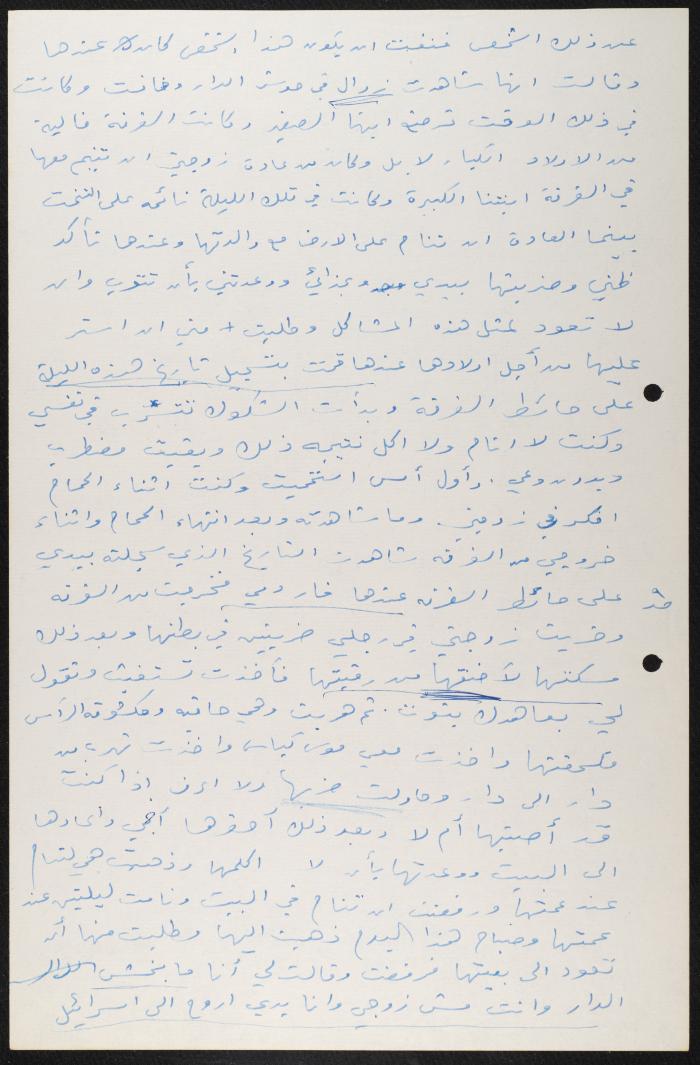 عن ذلك الشخص فنفت ان يكون هذا الشخص كان عندها
وقالت انها شاهدت زوال في حوش الدار وخافت وكانت
في ذلك الوقت ترضع ابنها الصغير وكانت الغرفة خالية
من الاولاد الكبار لا بل وكان من عادة زوجتي ان تنيم معها
في الغرفة ابنتنا الكبيرة وكانت في تلك الليلة نائمه على التخت
بينما العادة ان تنام على الارض مع والدتها وعندها تأكد
ظني وضربتها بيدي وبحذائي ووعدتني بأن تتوب وان
لا تعود لمثل هذه المشاكل وطلبت مني ان استر
عليها من أجل اولادها عندها قمت بتسجيل تاريخ هذه الليلة
على حائط الغرفة وبدأت الشكوك تتسرب في نفسي
وكنت لا انام ولا اكل نتيجه ذلك وبقيت مضطرب
وبدون وعي . وأول أمس استحميت وكنت اثناء الحمام
افكر في زوجتي وما شاهدته وبعد انتهاء الحمام واثناء
خروجي من الغرفه شاهدت التاريخ الذي سجلته بيدي
على حائط الغرفه عندها فار دمي فخرجت من الغرفه
وضربت زوجتي في رجلي ضربتين في بطنها وبعد ذلك
مسكتها لأخنقها من رقبتها فأخذت تستغيث وتقول
لي بعاهدك بتوب . ثم هربت وهي حافيه ومكشوفه الرأس
فلحقتها واخذت معي موس كباس واخذت تهرب من
دار الى دار وحاولت ضربها ولا اعرف اذا كنت
قد أصبتها أم لا وبعد ذلك أحضرها أخي واعادها
الى البيت ووعدتها بأن لا اكلمها وذهبت هي لتنام
عند عمتها ورفضت ان تنام في البيت ونامت ليلتين عند
عمتها وصباح هذا اليوم ذهبت اليها وطلبت منها أن
تعود الى بيتها فرفضت وقالت لي أنا ما بخش
الدار وانت مش زوجي وانا بدي اروح الى اسرائيل